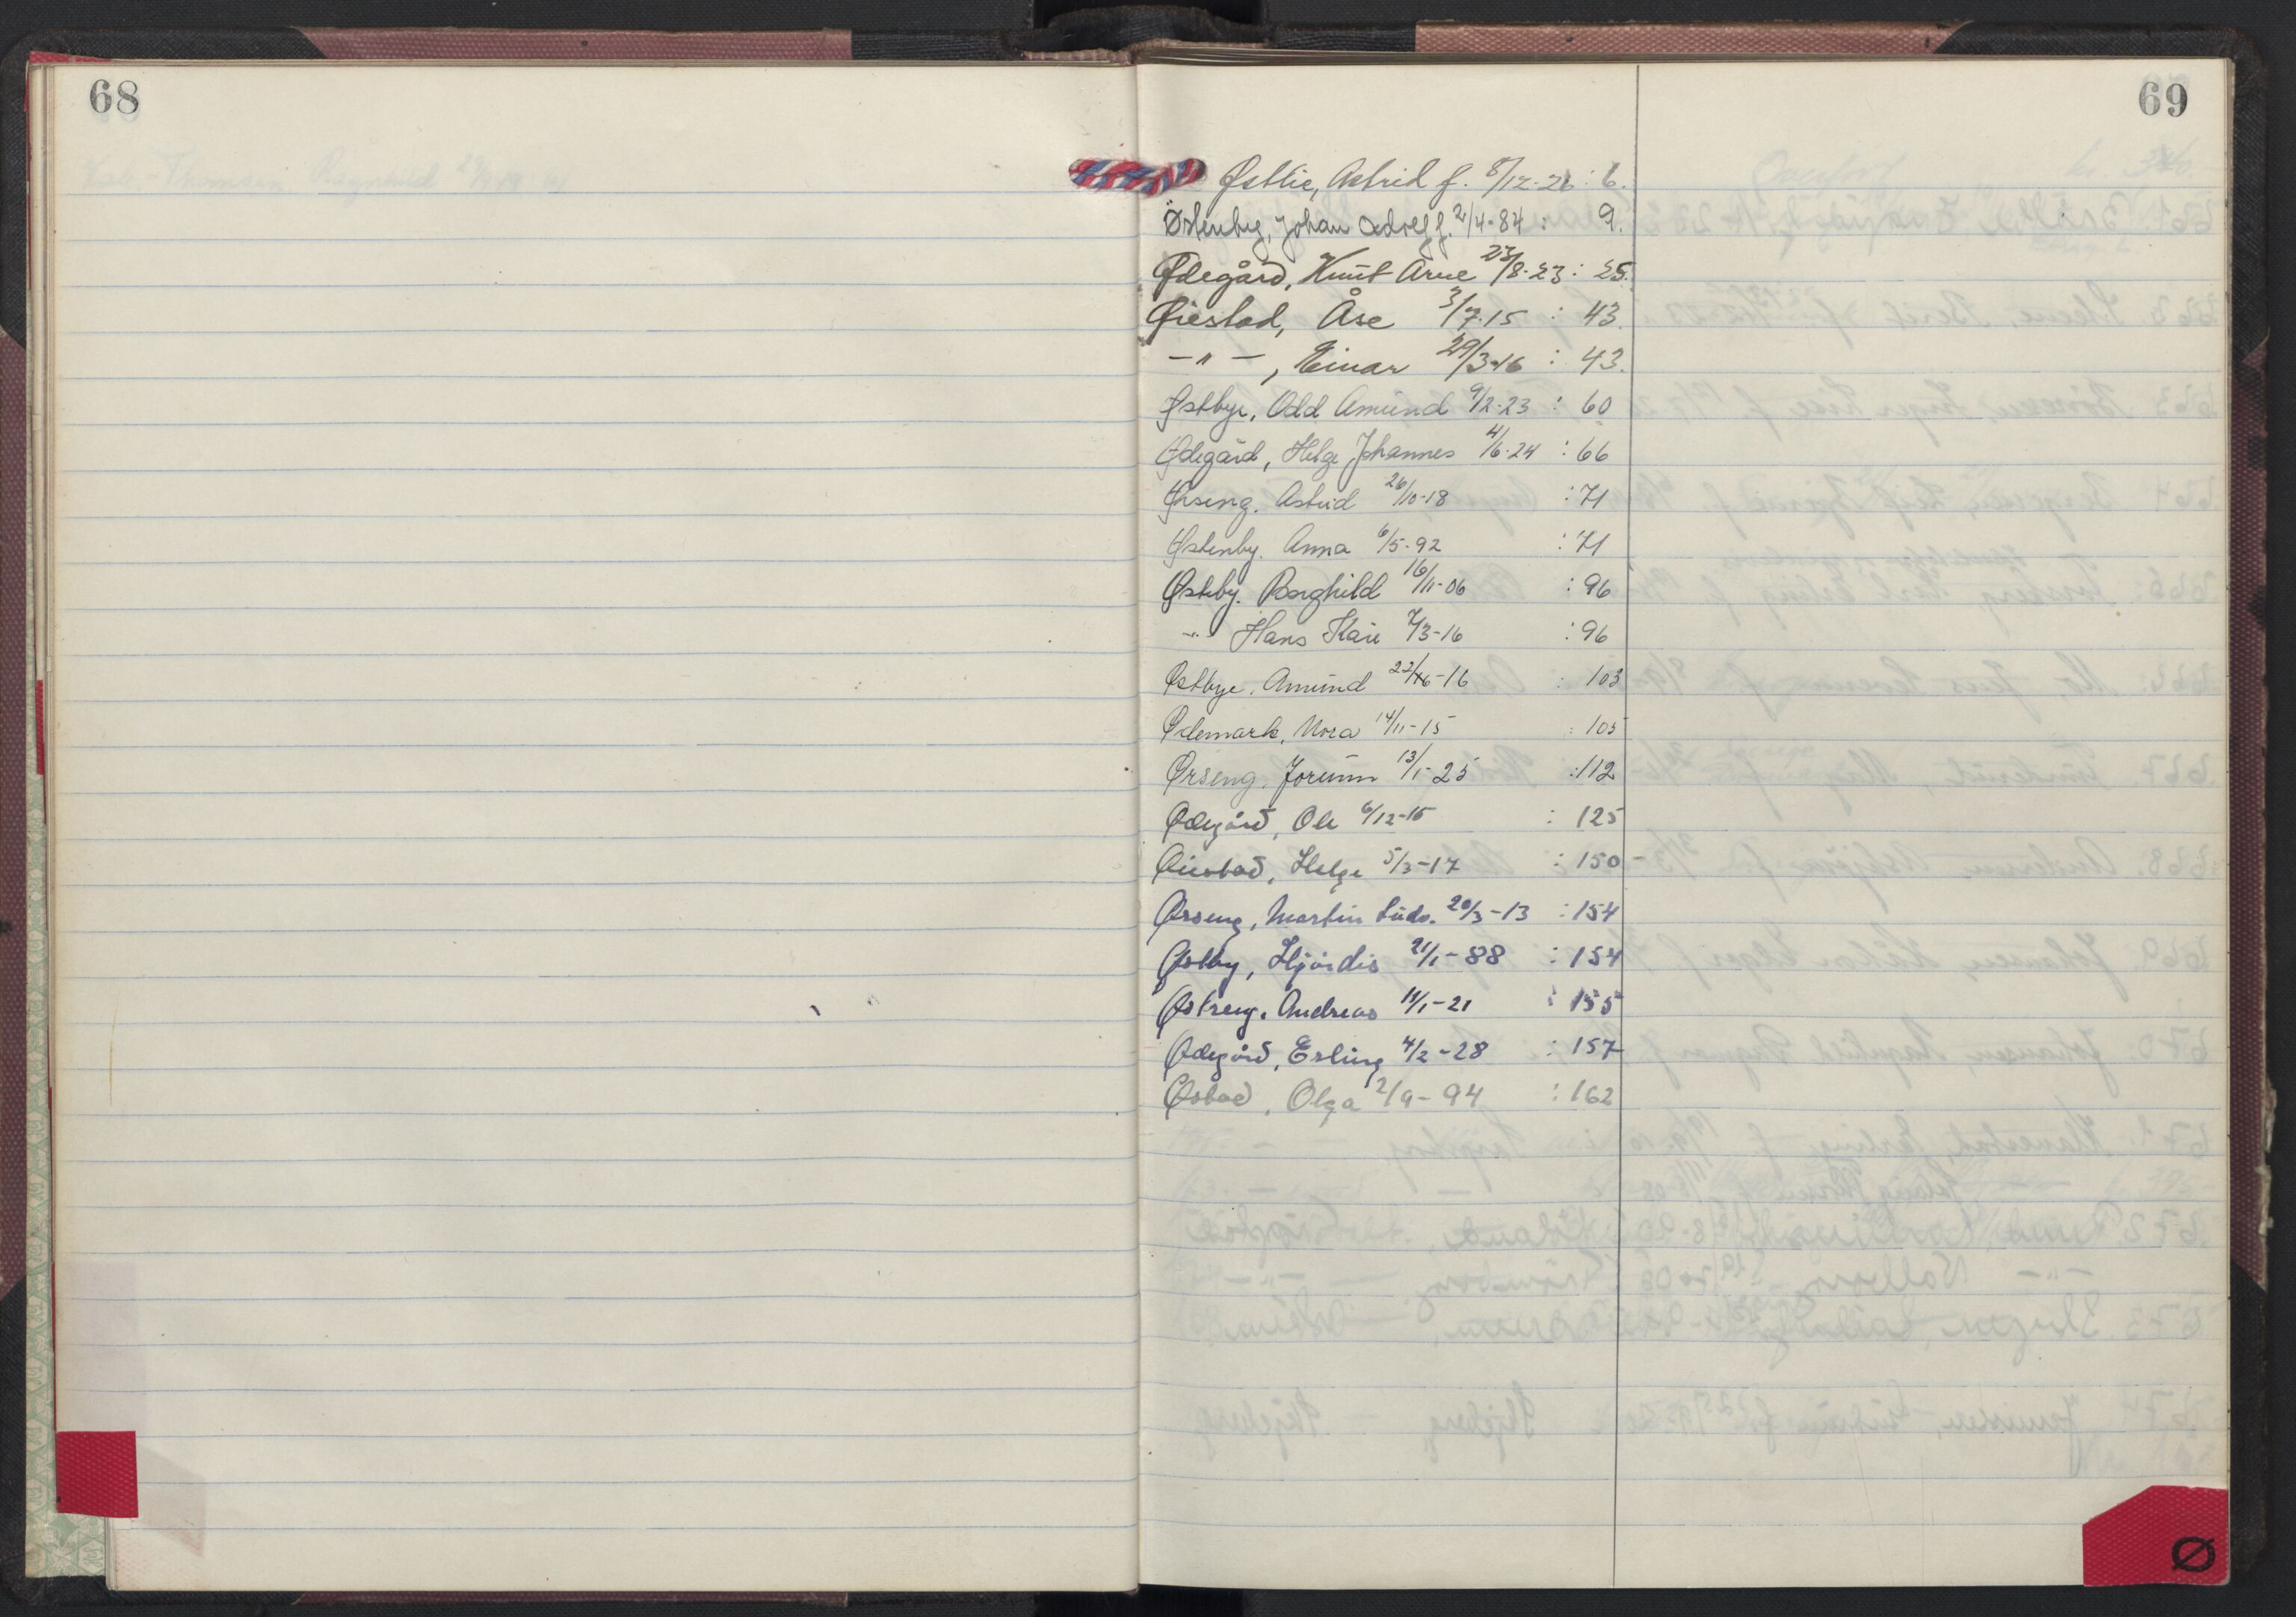 68
69
Østlie, Astrid f. 8/12-26 : 6.
Østenbyg, Johan Adolf f. 2/4-84 : 9.
Ødegård, Knut Arne 23/8-23 : 25.
Øiestad, Åse 3/7-15 : 43.
—"—, Einar 29/3-16 : 43.
Østbye, Odd Amund 9/2-23 : 60
Ødegård, Helge Johannes 4/6-24 : 66
Ørseng. Astrid 26/10-18 : 71
Østenby. Anna 6/5-92 : 71
Østeby. Borghild 16/11-06 : 96
-"- Hans Kåre 7/3-16 : 96
Østbye. Amund 22/6-16 : 103
Ødemark, Nora 14/11-15 : 105
Ørseng. Jorunn 13/1-25 : 112
Ødegård, Ole 6/12-15 : 125
Øiestad, Helge 5/3-17 : 150
Ørseng, Martin Ludv. 20/3-13 : 154
Østby, Hjørdis 21/1-88 : 154
Østreng. Andreas 11/1-21 : 155
Ødegård, Erling 4/2-28 : 157
Østad, Olga 2/9-94 : 162
Ø